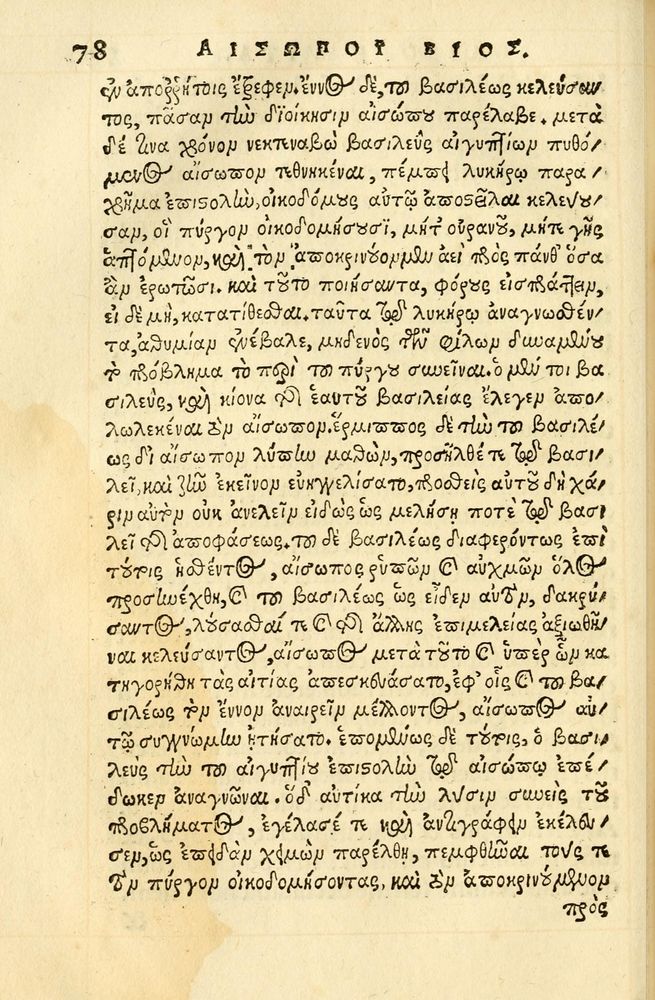 78 ΑΙΣΩΠΟΥ ΒΙΟΣ.
ἐν ἀποῤῥήτοις ἔτρεφεν. ἔννος δὲ, τοῦ βασιλέως κελεύσαν/
τος, πᾶσαν τὴν διοίκησιν αἰσώπου παρέλαβε. μετὰ
δέ τινα χρόνον νεκτεναβὼ βασιλεὺς αἰγυπτίων πυθό/
μενος αἴσωπον τεθνηκέναι, πέμπει λυκήρῳ παρα/
χρῆμα ἐπιστολὴν, οἰκοδόμους αὐτῷ ἀποστεῖλαι κελεύου/
σαν, οἳ πύργον οἰκοδομήσουσι, μήτ' οὐρανοῦ, μήτε γῆς
ἁπτόμενον, καὶ τὸν ἀποκρινούμενον ἀεὶ πρὸς πάνθ' ὅσα
ἂν ἐρωτῶσι. καὶ τοῦτο ποιήσαντα, φόρους εἰσπράττειν,
εἰ δὲ μὴ, κατατίθεσθαι. ταῦτα τῷ λυκήρῳ ἀναγνωσθέν/
τα, ἀθυμίαν ἐνέβαλε, μηδενὸς τῶν φίλων δυναμένου
τὸ πρόβλημα τὸ περὶ τοῦ πύργου συνεῖναι. ὁ μέν τοι βα
σιλεὺς, καὶ κίονα τῆς ἑαυτοῦ βασιλείας ἔλεγεν ἀπο/
λωλεκέναι τὸν αἴσωπον. ἕρμιππος δὲ τὴν τοῦ βασιλέ/
ως δι' αἴσωπον λύπην μαθὼν, προσῆλθέ τε τῷ βασι/
λεῖ, καὶ ζῆν ἐκεῖνον εὐηγγελίσατο, προσθεὶς αὐτοῦ δὴ χά/
ριν αὐτὸν οὐκ ἀνελεῖν εἰδὼς ὡς μελήσῃ ποτὲ τῷ βασι
λεῖ τῆς ἀποφάσεως. τοῦ δὲ βασιλέως διαφερόντως ἐπὶ
τούτοις ἡσθέντος, αἴσωπος ῥυπῶν καὶ αὐχμῶν ὅλος
προσηνέχθη, καὶ τοῦ βασιλέως ὡς εἶδεν αὐτὸν, δακρύ/
σαντος, λούσασθαί τε καὶ τῆς ἄλλης ἐπιμελείας ἀξιωθῆ/
ναι κελεύσαντος, αἴσωπος μετὰ τοῦτο καὶ ὑπὲρ ὧν κα
τηγορήθη τὰς αἰτίας ἀπεσκευάσατο, ἐφ' οἷς καὶ τοῦ βα/
σιλέως τὸν ἔννον ἀναιρεῖν μέλλοντος, αἴσωπος αὐ/
τῷ συγγνώμην ᾐτήσατο. ἑπομένως δὲ τούτοις, ὁ βασι/
λεὺς τὴν τοῦ αἰγυπτίου ἐπιστολὴν τῷ αἰσώπῳ ἐπέ/
δωκεν ἀναγνῶναι. ὁ δ' αὐτίκα τὴν λύσιν συνεὶς τοῦ
προβλήματος, ἐγέλασέ τε καὶ ἀντιγράφειν ἐκέλευ/
σεν, ὡς ἐπειδὰν χειμὼν παρέλθῃ, πεμφθῆναι τούς τε
τὸν πύργον οἰκοδομήσοντας, καὶ τὸν ἀποκρινούμενον
πρὸς